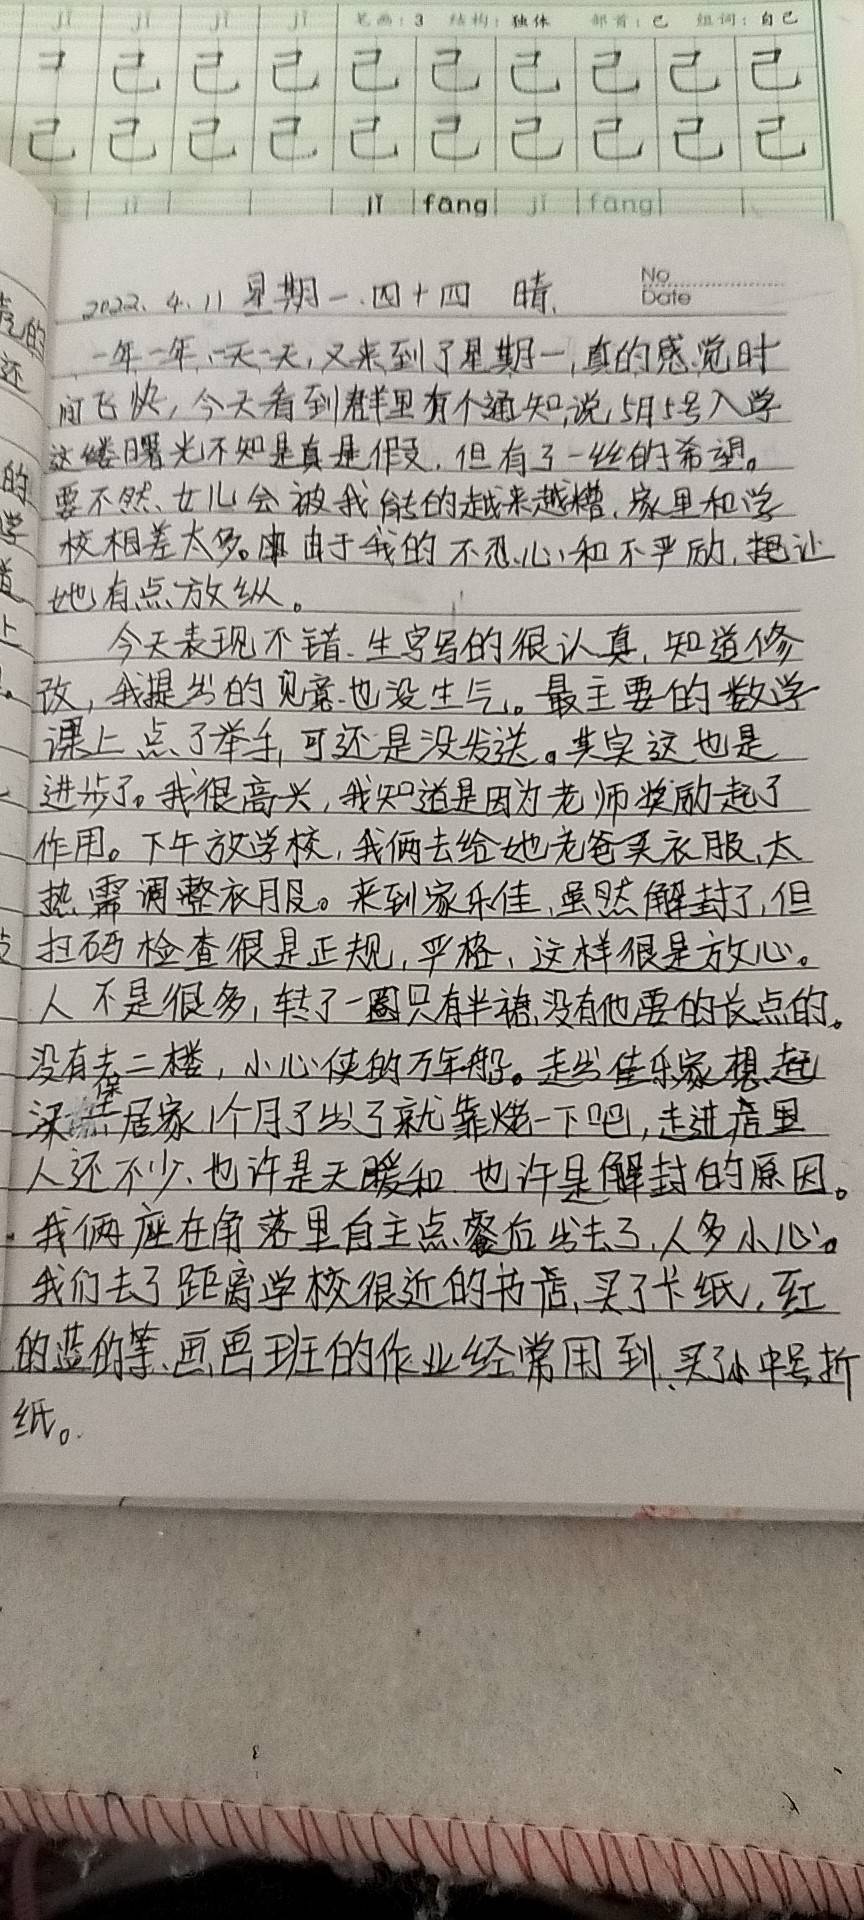 jǐ jǐ jǐ jǐ 笔画：3 结构：独体 部首：己 组词：自己
己 己 己 己 己 己 己 己 己
己 己 己 己 己 己 己 己 己 己
jǐ jǐ fāng jǐ fāng
No
Date
2022、4、11 星期一、四十四 晴、
一年一年、一天一天，又来到了星期一，真的感觉时
间飞快，今天看到群里有个通知，说，5月5号入学
这缕曙光不知是真是假，但有了一丝的希望。
要不然、女儿会被我的越来越糟、家里和学
校相差太多。由于我的不忍心和不严励，把让
她有点放纵。
今天表现不错、生字写的很认真，知道修
改，我提出的见意也没生气。最主要的数学
课上点了举手，可还是没发送。其实这也是
进步了。我很高兴，我知道是因为老师奖励起了
作用。下午放学校，我俩去给她老爸买衣服、太
热需调整衣服。来到家乐佳，虽然解封了，但
扫码检查很是正规，严格，这样很是放心。
人不是很多，转了一圈只有半袖，没有他要的长点的。
没有去二楼，小心使的万年船。走出佳乐家想赶
深 保 居家1个月了出了就靠烧一下吧，走进店里
人还不少、也许是天暖和 也许是解封的原因。
我俩座在角落里自主点餐后出去了，人多小心。
我们去了距离学校很近的书店，买了卡纸，红
的蓝的等、画画班的作业经常用到、买了小中号折
纸。
的
还
的
学
道
上